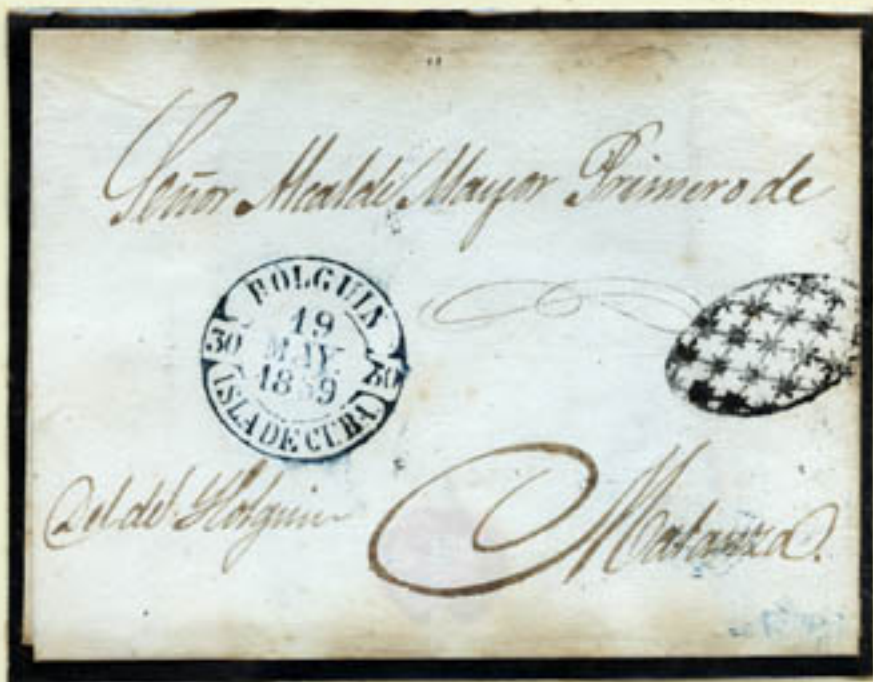 Señor Alcalde Mayor Primero de
HOLGUIN
19
MAY.
1859
30
30
ISLA DE CUBA
Del del Holguin
Matanza.